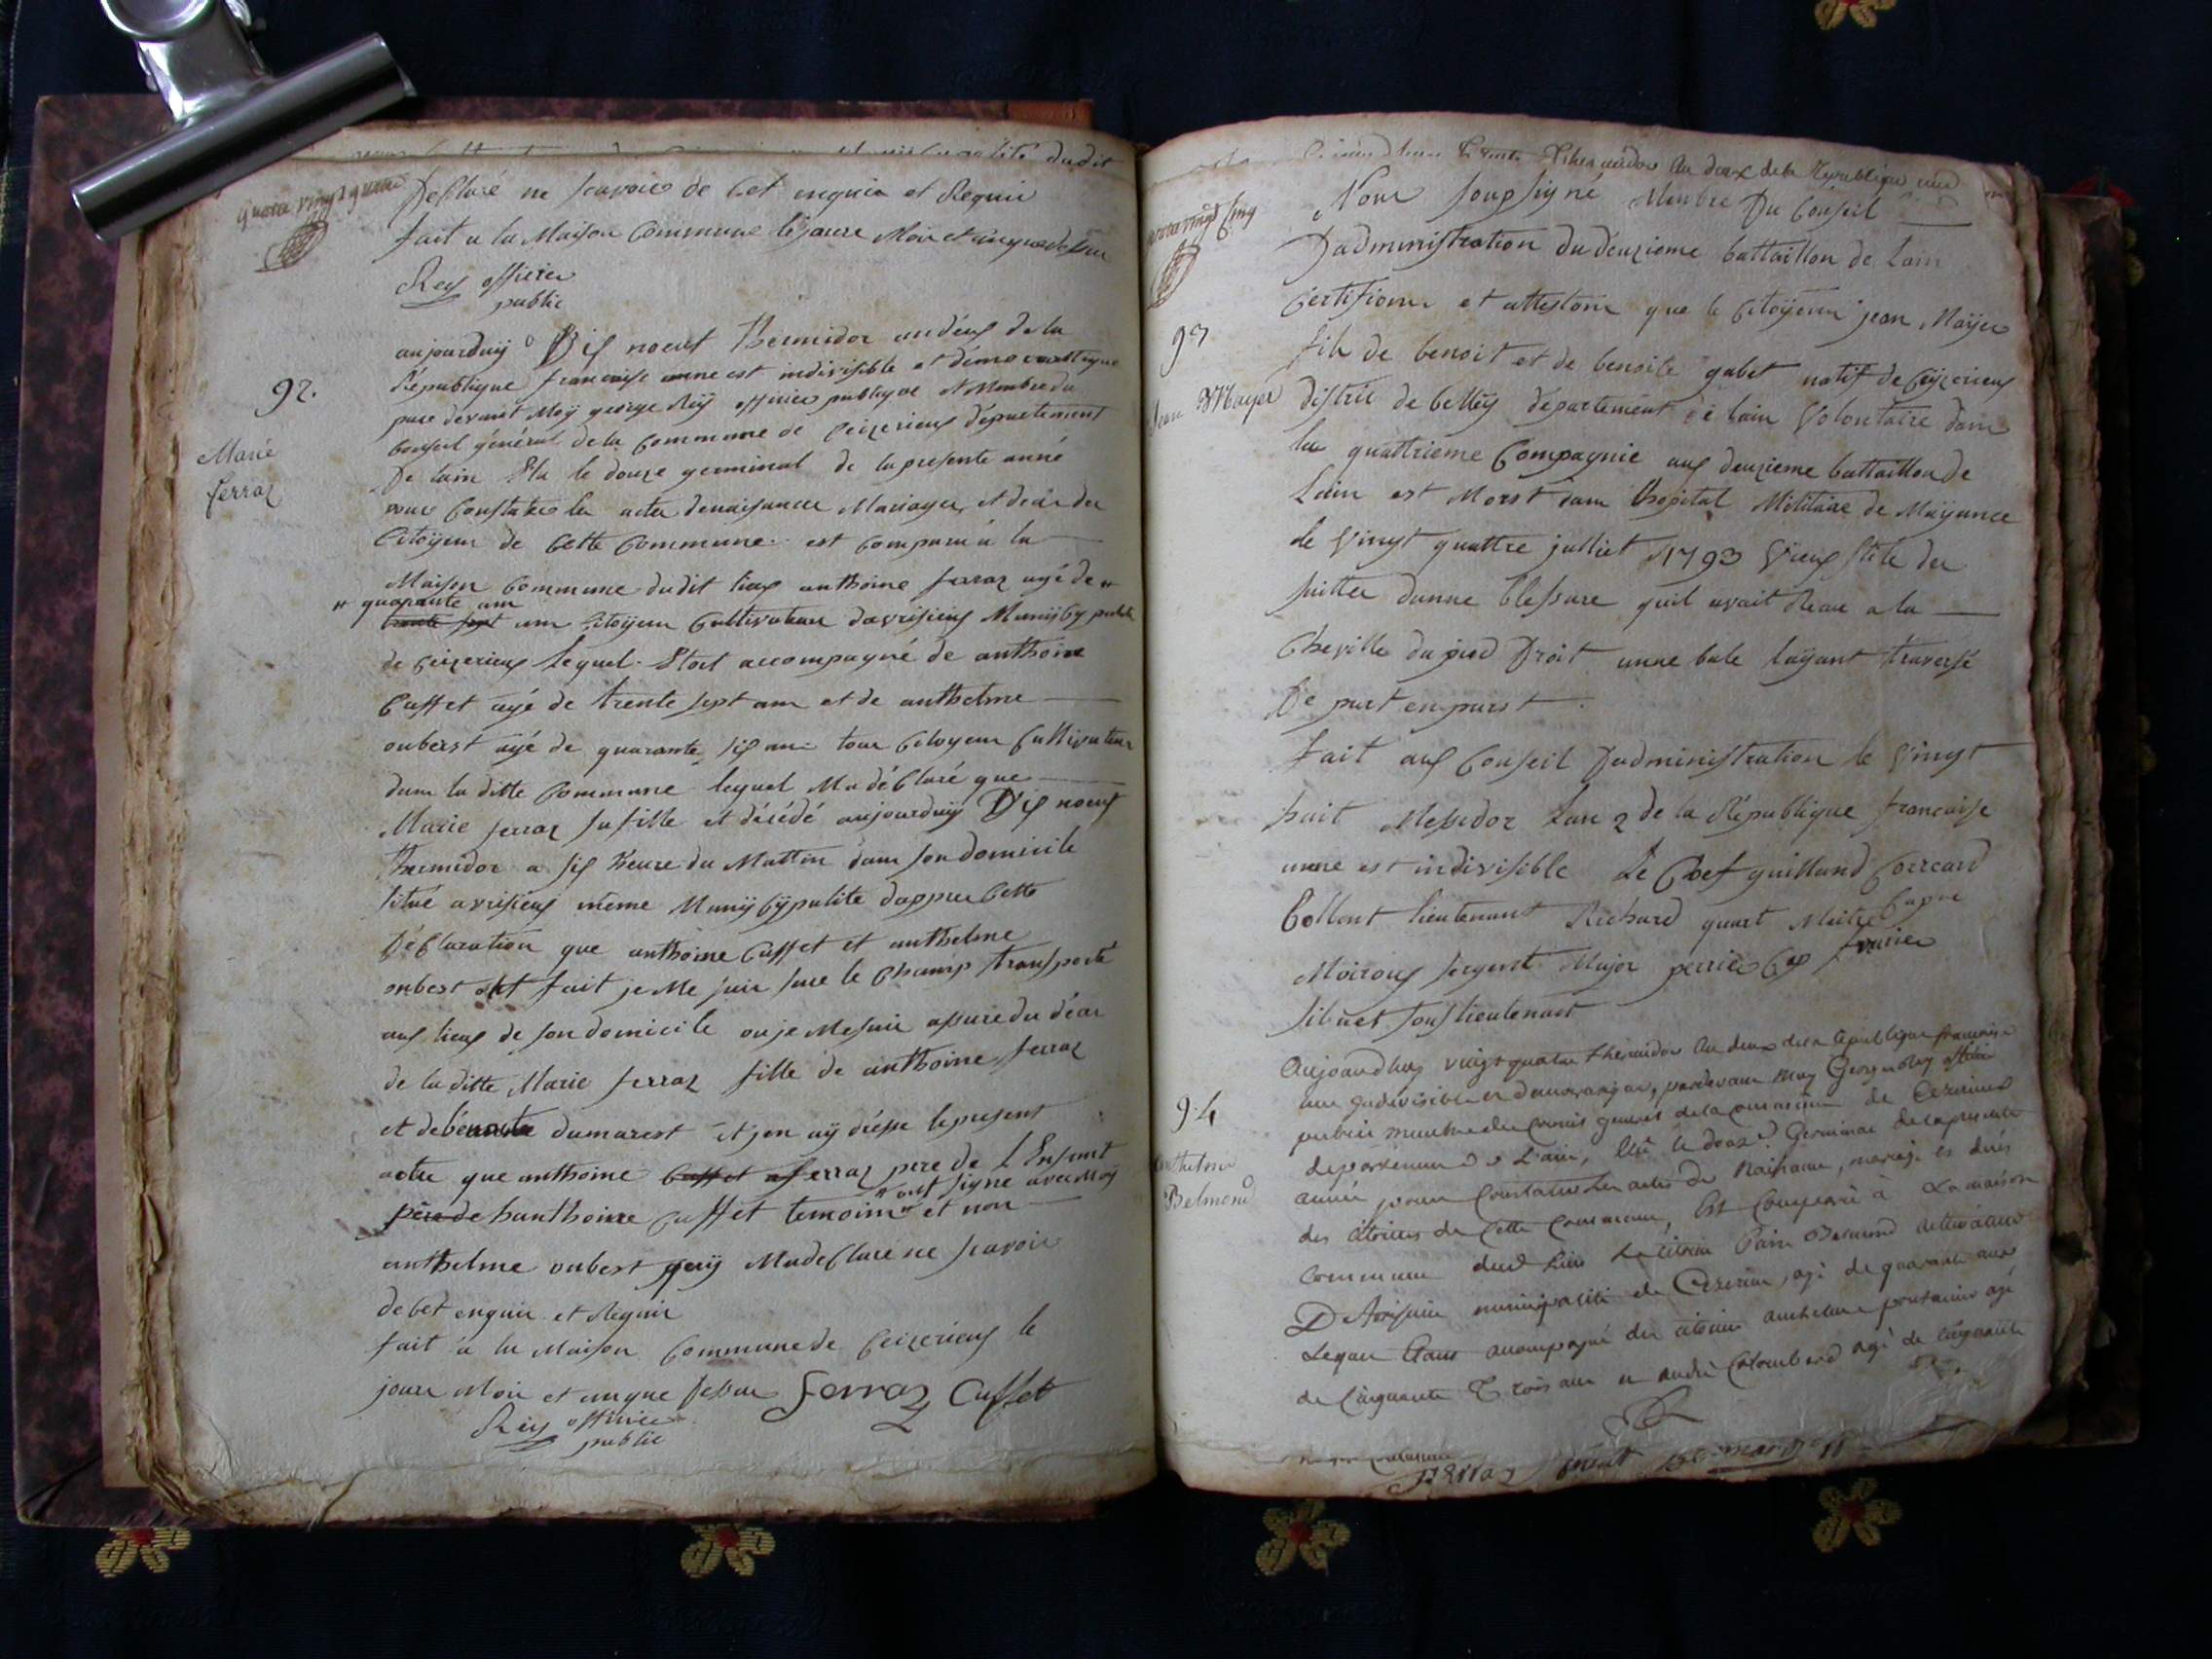 et municipalité dudit
quatre vingt quatre
Déclaré ne scavoir de cet enquis et Requis
fait a la Maison Commune le jour Moi et an que dessus
Rey officier
public
92.
Marie
ferraz
aujourduiy Dix noeuf Thermidor an déux de la
République francaise unne est indivisible et démocratique
par devant Moÿ george Reÿ officier publique Membre du
Conseil général de la Commune de Ceizerieux département
De lain Elu le douze germinal de la presente anné
pour Constater les actes de naisance Mariages et décès des
Citoÿens de Cette Commune est Comparu a la
Maison Commune dudit lieux anthoine ferraz agé de
quarante ans
trente sept ans Citoÿen Cultivateur davrisieux Municÿpalité
de Ceizerieux lequel Etoit accompagné de anthoine
Cuffet agé de trente sept ans et de anthelme
oubert agé de quarante six ans tous Citoyens Cultivateur
dans la ditte Commune lequel Ma déClaré que
Marie ferraz sa fille et décédé aujourduiÿ Dix noeuf
thermidor a six heure du Mattin dans son domicile
situé avrisieux même Muniÿcÿpalité dappres Cette
DéClaration que anthoine Cuffet et anthelme
oubert ont fait je Me suis sure le Champ transporté
aux lieux de son domicile ou je Me suis assure du décès
de la ditte Marie ferraz fille de anthoine ferraz
et de bénoite dumarest et jen aÿ dressé le present
actte que anthoine Cuffet ferraz pere de L'Enfant
ont signé avec Moÿ
père de hanthoine Cuffet temoins et non
anthelme oubert quiÿ Ma déClaré ne scavoir
de Cet enquis et Requis
fait a la Maison Commune de Ceizerieux le
jour Moi et an que dessus ferraz Cuffet
Reÿ officier
public
thermidor an deux de la République une
quatre vingt Cinq
Nous soussigné Membre Du Conseil
D'administration du deuzieme battaillon de Lain
Certifions et attestons que le Citoÿenn jean Maÿer
93
fils de benoit et de benoite gabet natif de Ceÿzerieux
jean Mayer
distric de belleÿ département de lain Volontaire dans
la quattrieme Compagnie aux deuzieme battaillon de
Lain est Mort dans lhopital Militaire de Maÿance
le Vingt quattre julliet 1793 Vieux stile des
suittes dunne blessure quil avait Reeu a la
Cheville du pied Droit unne bale laÿant traversé
De part en part
fait aux Conseil Dadministration le Vingt
huit Messidor Lan 2 de la République francaise
unne est indivisible Le Chef guilland Correard
Collont lieutenant Richard quart Maitre Capne
Moiroux sergent Major perrier Cap furier
siluet sous lieutenant
94
anthelme
Belmond
Aujourdhuy vingt quatre thermidor an deux de la république francaise
une indivisible et démocratique, pardevant Moy George Rey officier
public membre du conseil general de la commune de Cezerieux
departement de L'ain, Elu le douze Germinal de la presente
année pour Constater les actes de Naissance, mariage et décés
des citoiens de Cette Commune, est Comparu à la maison
commune dud lieu le citoien Belmond cultivateur
D'Avrisieu municipalité de Cezerieu, agé de quarante ans
Lequel Etant accompagné des citoiens anthelme agé
de Cinquante trois ans et andré Colombard agé de cinquante